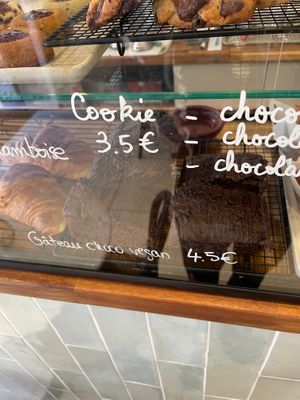 Cookie - choco
amboise 3.5€ - chocol
- chocola
Gâteau choco vegan 4.5€